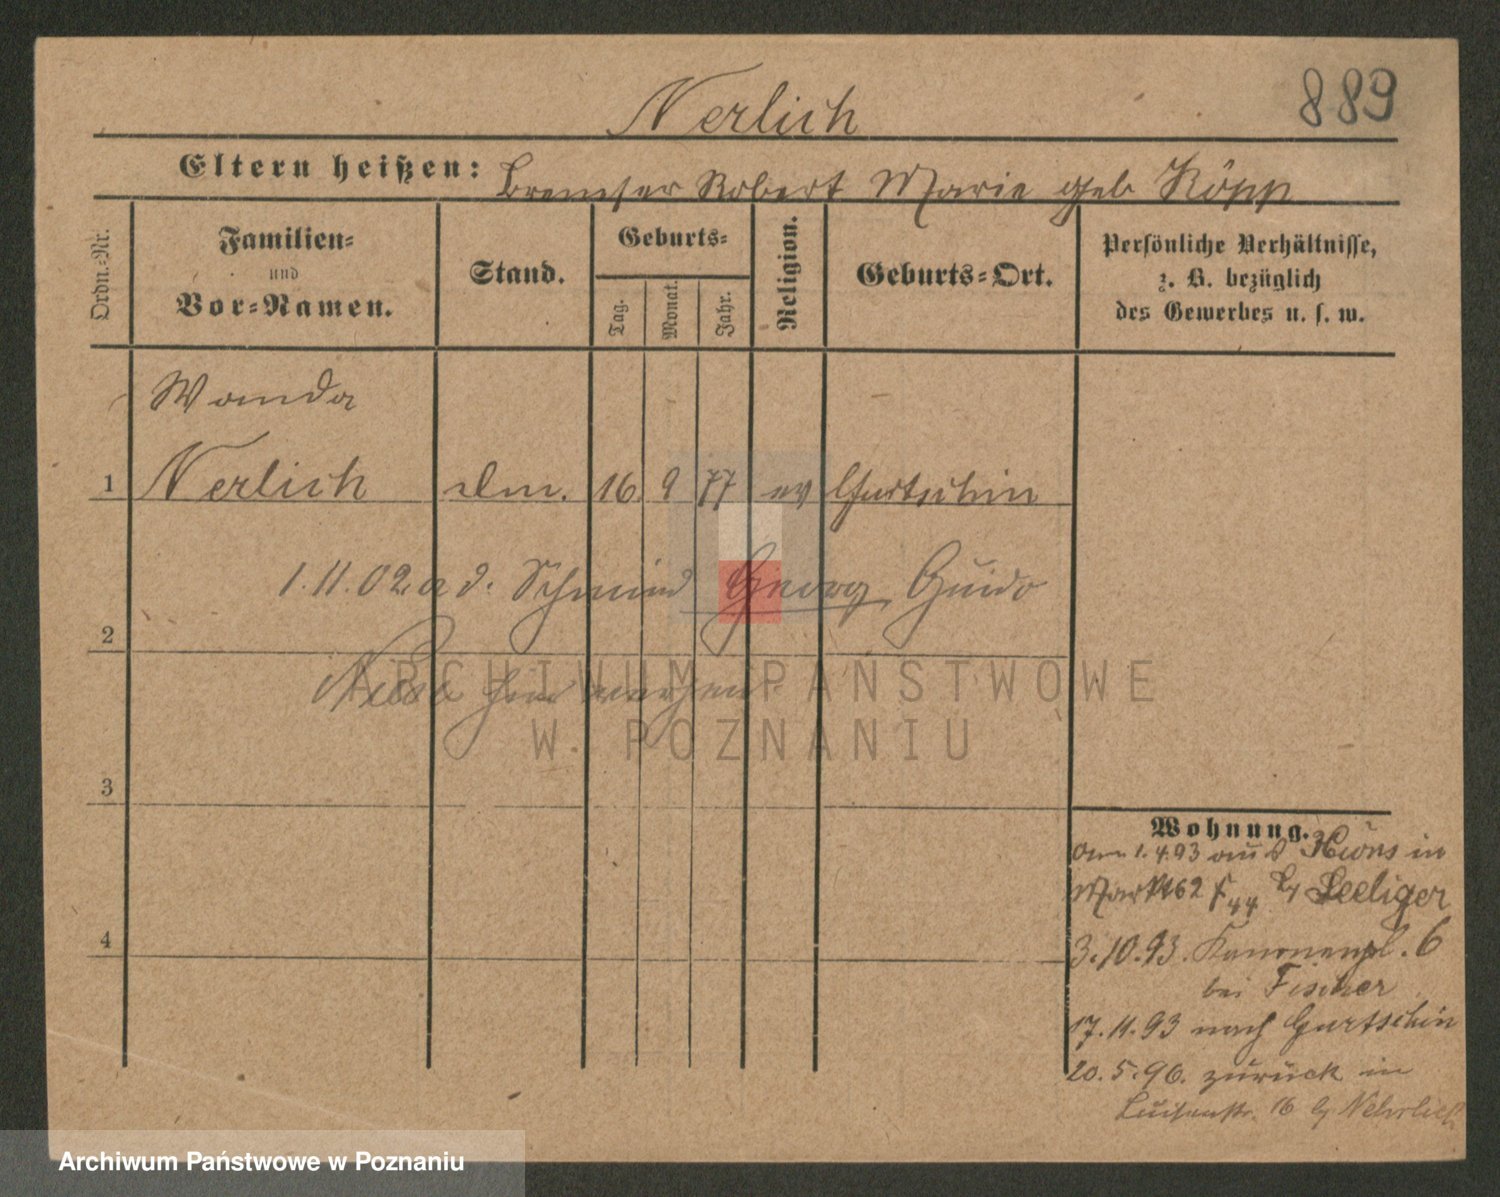 889
Nerlich
Eltern heißen: Bremser Robert Marie geb Köpp
Ordn.-Nr.
Familien-
und
Vor-Namen.
Stand.
Geburts-
Tag.
Monat.
Jahr.
Religion.
Geburts-Ort.
Persönliche Verhältnisse,
z. B. bezüglich
des Gewerbes u. s. w.
Wanda
1 Nerlich 16 9 77 ev Gurtschin
1.11.02 a d. Schmied Georg Guido
2
3
4
ARCHIWUM PAŃSTWOWE
W POZNANIU
Wohnung.
am 1.4.93 aus in
Markt 62 Seeliger
3.10.93. Kanonenpl. 6
bei Fischer
17.11.93 nach Gurtschin
20.5.96. zurück in
Luisenstr. 16 Nehrlich
Archiwum Państwowe w Poznaniu